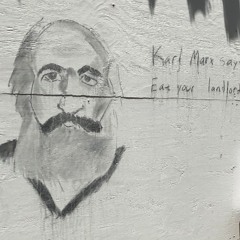 Karl Marx says
Eat your landlord